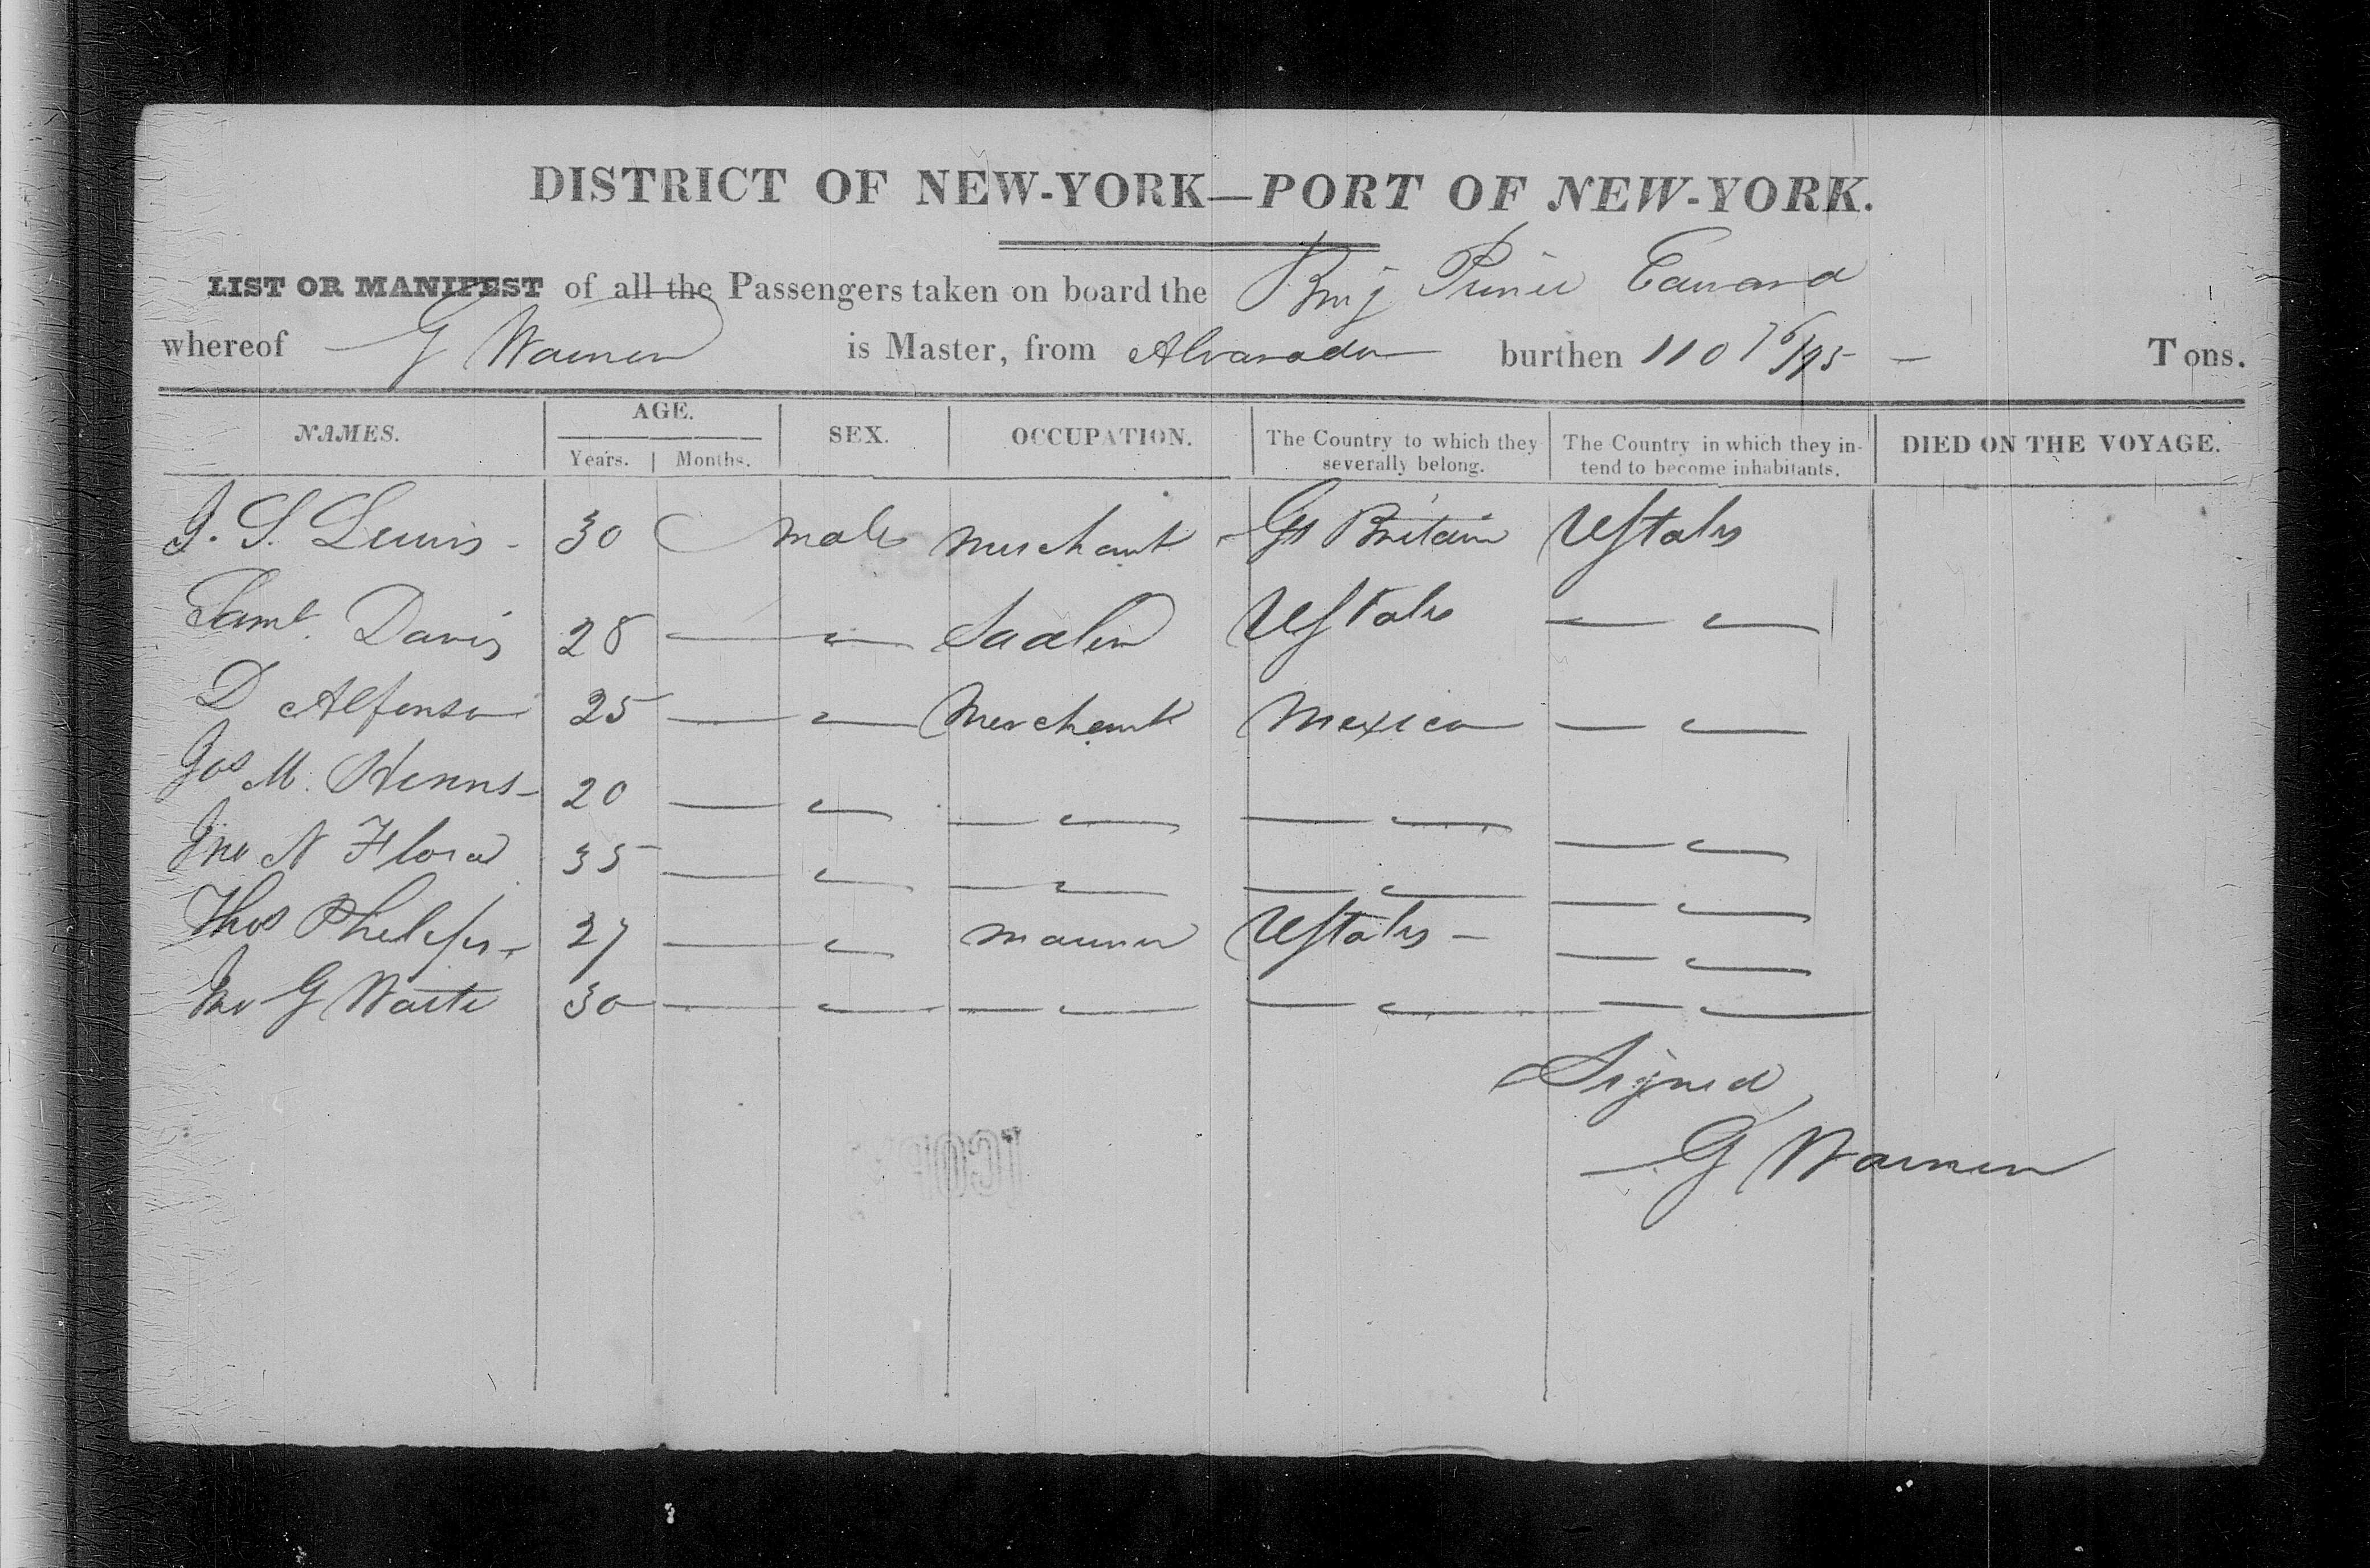 DISTRICT OF NEW-YORK—PORT OF NEW-YORK.
LIST OR MANIFEST of all the Passengers taken on board the Brig Prince Edward
whereof G Warner is Master, from Alvarado burthen 110 76/95 Tons.
NAMES. AGE. SEX. OCCUPATION. The Country to which they severally belong. The Country in which they intend to become inhabitants. DIED ON THE VOYAGE.
Years. Months.
J. S. Lewis 30 male merchant Gt Britain UStates
Saml. Davis 28 Sadler UStates
D Alfonso 25 Merchant Mexico
Jos M. 20
Jno N Flora 35
Thos Phelps 27 mariner UStates
Jno G Waite 30
Signed
G Warner